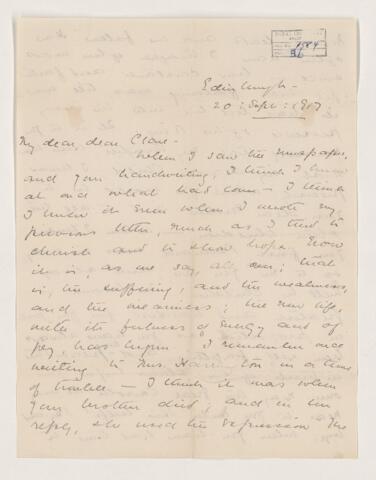 1984
36
Edinburgh -
20: Sept: 1917.
My dear, dear Clare -
When I saw the newspaper,
and your handwriting, I think I knew
at once what had come - I think
I knew it even when I wrote my
previous letter, much as I tried to
cherish and to show hope. Now
it is, as we say, all over; that
is, the suffering, and the weakness,
and the weariness; the new life,
with its fulness of energy and of
joy, has begun. I remember once
writing to Mrs. in a time
of trouble - I think it was when
your brother died, and in her
reply, she used the expression "the